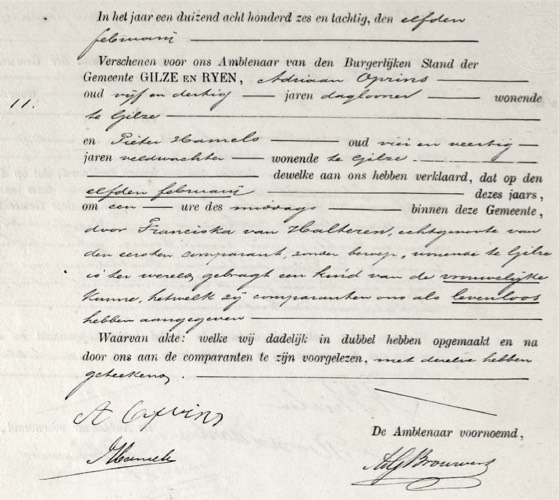 In het jaar een duizend acht honderd zes en tachtig, den elfden
februarij
Verschenen voor ons Ambtenaar van den Burgerlijken Stand der
Gemeente GILZE EN RYEN, Adriaan Oprins
11.
oud vijf en dertig jaren daglooner wonende
te Gilze
en Pieter Hamels oud vier en veertig
jaren veldwachter wonende te Gilze.
dewelke aan ons hebben verklaard, dat op den
elfden februarij dezes jaars,
om een ure des middags binnen deze Gemeente,
door Franciska van Halteren, echtgenoote van
den eersten comparant, zonder beroep, wonende te Gilze
is ter wereld gebragt een kind van de vrouwelijke
kunne, hetwelk zij comparanten ons als levenloos
hebben aangegeven
Waarvan akte: welke wij dadelijk in dubbel hebben opgemaakt en na
door ons aan de comparanten te zijn voorgelezen, met dezelve hebben
geteekend.
A Oprins
De Ambtenaar voornoemd,
PHamels
Brouwers